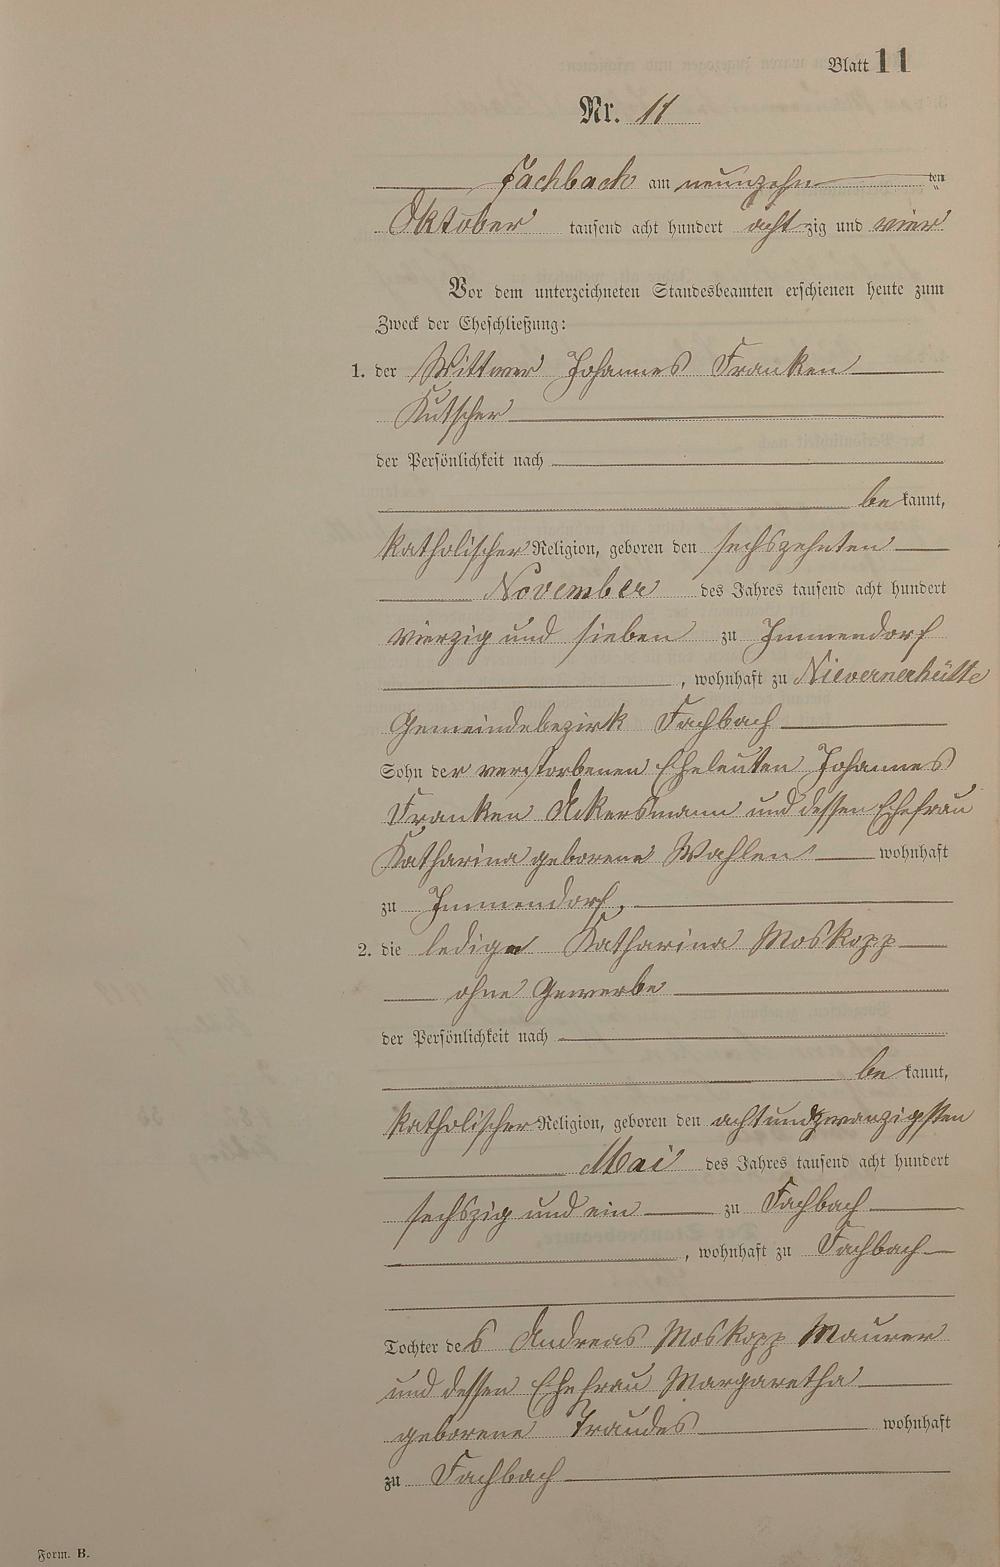 Blatt 11
Nr. 11
Fachbach am neunzehn ten
Oktober tausend acht hundert achtzig und vier
Vor dem unterzeichneten Standesbeamten erschienen heute zum
Zweck der Eheschließung:
1. der Wittwer Johannes Franken
Kutscher
der Persönlichkeit nach
be kannt,
katholischer Religion, geboren den sechszehnten
November des Jahres tausend acht hundert
vierzig und sieben zu Immendorf
, wohnhaft zu Nievernerhütte
Gemeindebezirk Fachbach
Sohn der verstorbenen Eheleuten Johannes
Franken Ackersmann und dessen Ehefrau
Katharina geborene Wahlen wohnhaft
zu Immendorf.
2. die ledige Katharina Moskopp
ohne Gewerbe
der Persönlichkeit nach
be kannt,
katholischer Religion, geboren den achtundzwanzigsten
Mai des Jahres tausend acht hundert
sechszig und ein zu Fachbach
, wohnhaft zu Fachbach
Tochter des Andreas Moskopp Maurer
und dessen Ehefrau Margaretha
geborene Fraudes wohnhaft
zu Fachbach
Form. B.